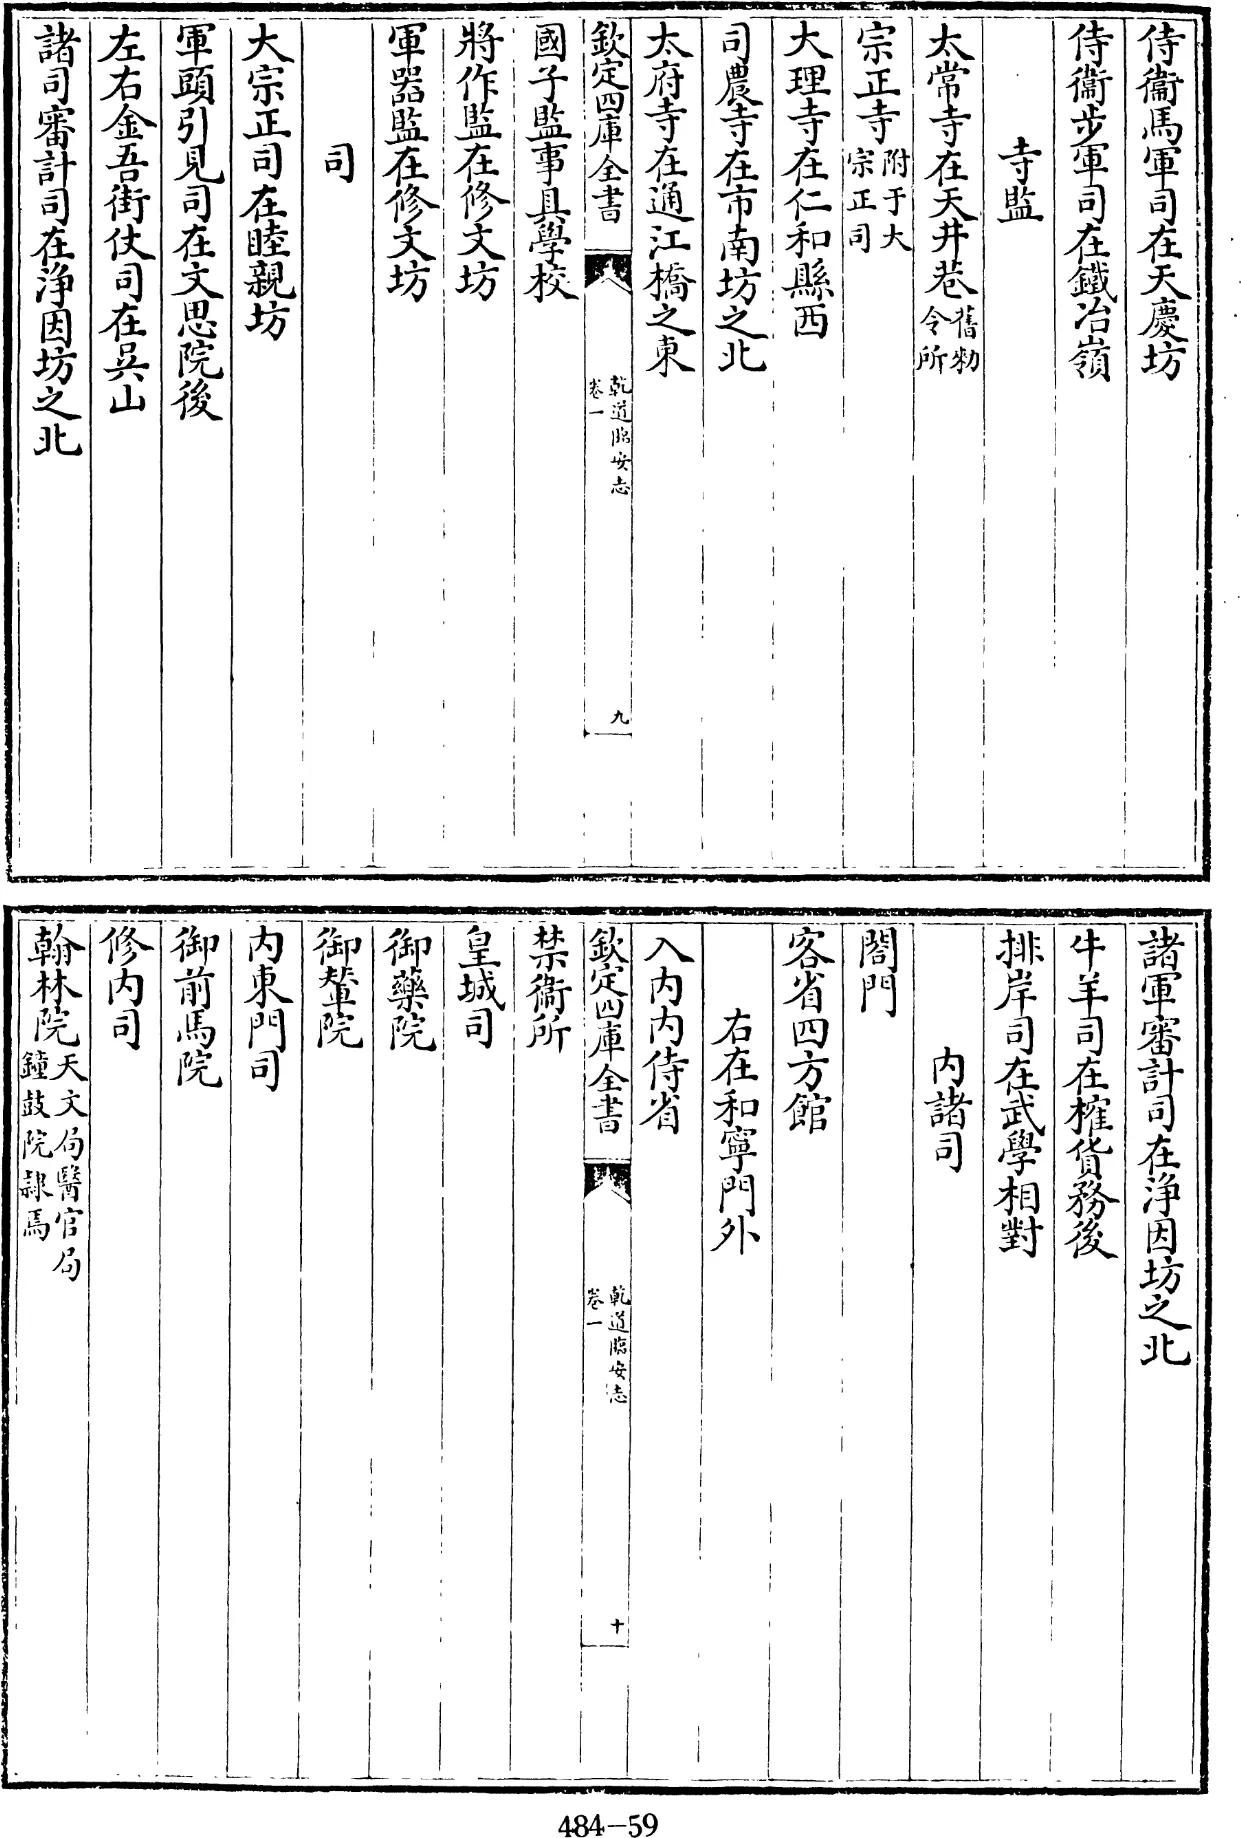 侍衞馬軍司在天慶坊
侍衞步軍司在鐵冶嶺
寺監
太常寺在天井巷舊勑令所
宗正寺附于大宗正司
大理寺在仁和縣西
司農寺在市南坊之北
太府寺在通江橋之東
欽定四庫全書
乾道臨安志
卷一
九
國子監事具學校
將作監在修文坊
軍器監在修文坊
司
大宗正司在睦親坊
軍頭引見司在文思院後
左右金吾街仗司在吳山
諸司審計司在淨因坊之北
諸軍審計司在淨因坊之北
牛羊司在榷貨務後
排岸司在武學相對
内諸司
閤門
客省四方館
右在和寧門外
入内内侍省
欽定四庫全書
乾道臨安志
卷一
十
禁衞所
皇城司
御藥院
御輦院
内東門司
御前馬院
修内司
翰林院天文局醫官局鐘鼓院隸焉
484-59